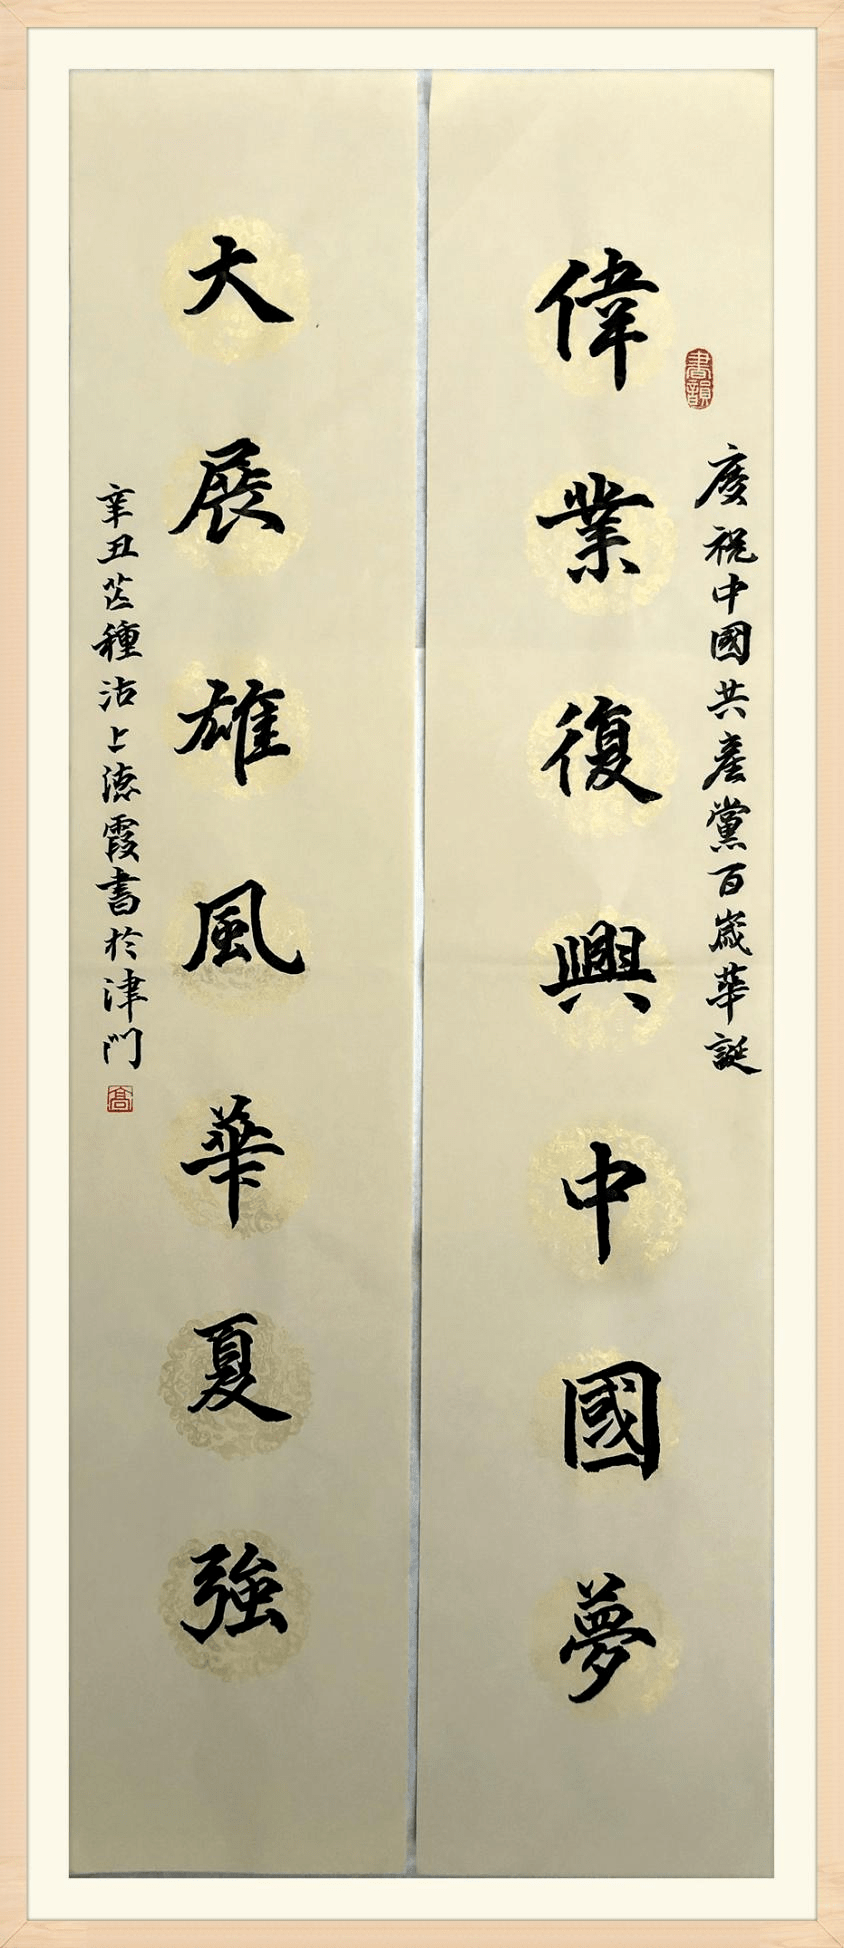 慶祝中國共産黨百歲華誕
偉業復興中國夢
大展雄風華夏強
辛丑芒種沽上德霞書於津門
書韻
高